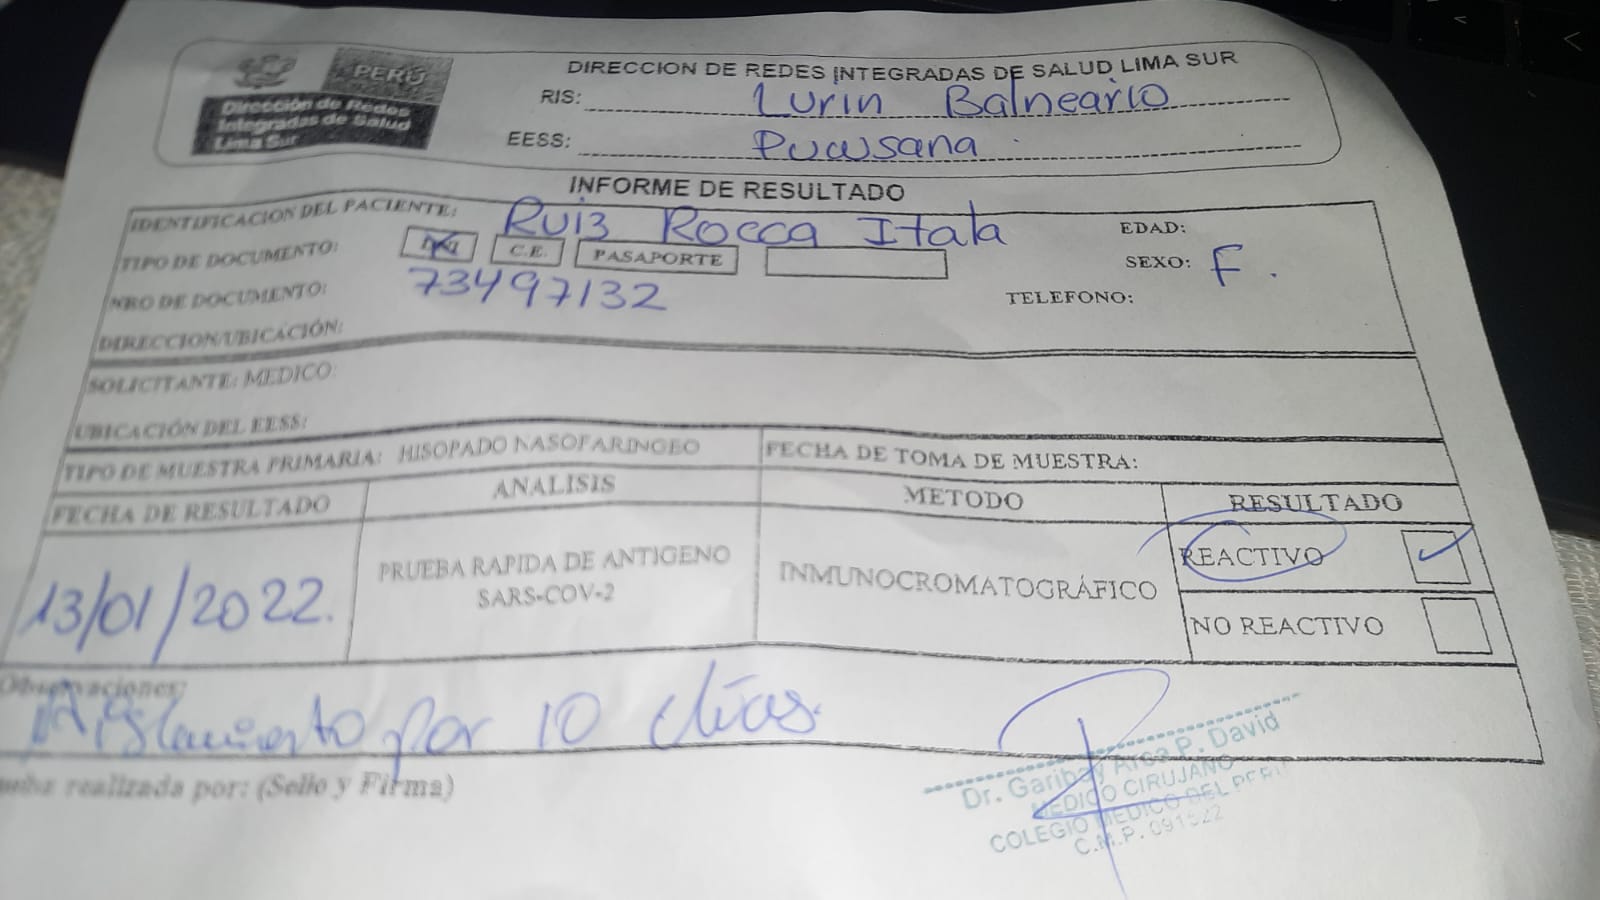 PERÚ
Dirección de Redes
Integradas de Salud
Lima Sur
DIRECCION DE REDES INTEGRADAS DE SALUD LIMA SUR
RIS: Lurin Balneario
EESS: Pucusana
INFORME DE RESULTADO
IDENTIFICACION DEL PACIENTE: Ruiz Rocca Itala
EDAD:
TIPO DE DOCUMENTO: DNI C.E. PASAPORTE
SEXO: F.
NRO DE DOCUMENTO: 73497132
TELEFONO:
DIRECCION/UBICACIÓN:
SOLICITANTE: MEDICO:
UBICACIÓN DEL EESS:
TIPO DE MUESTRA PRIMARIA: HISOPADO NASOFARINGEO
FECHA DE TOMA DE MUESTRA:
FECHA DE RESULTADO ANALISIS METODO RESULTADO
13/01/2022.
PRUEBA RAPIDA DE ANTIGENO
SARS-COV-2
INMUNOCROMATOGRÁFICO
REACTIVO ✓
NO REACTIVO
Observaciones:
Aislamiento por 10 días.
realizada por: (Sello y Firma)
Dr. Garibay P. David
MEDICO CIRUJANO
COLEGIO MEDICO DEL PERU
C.M.P.